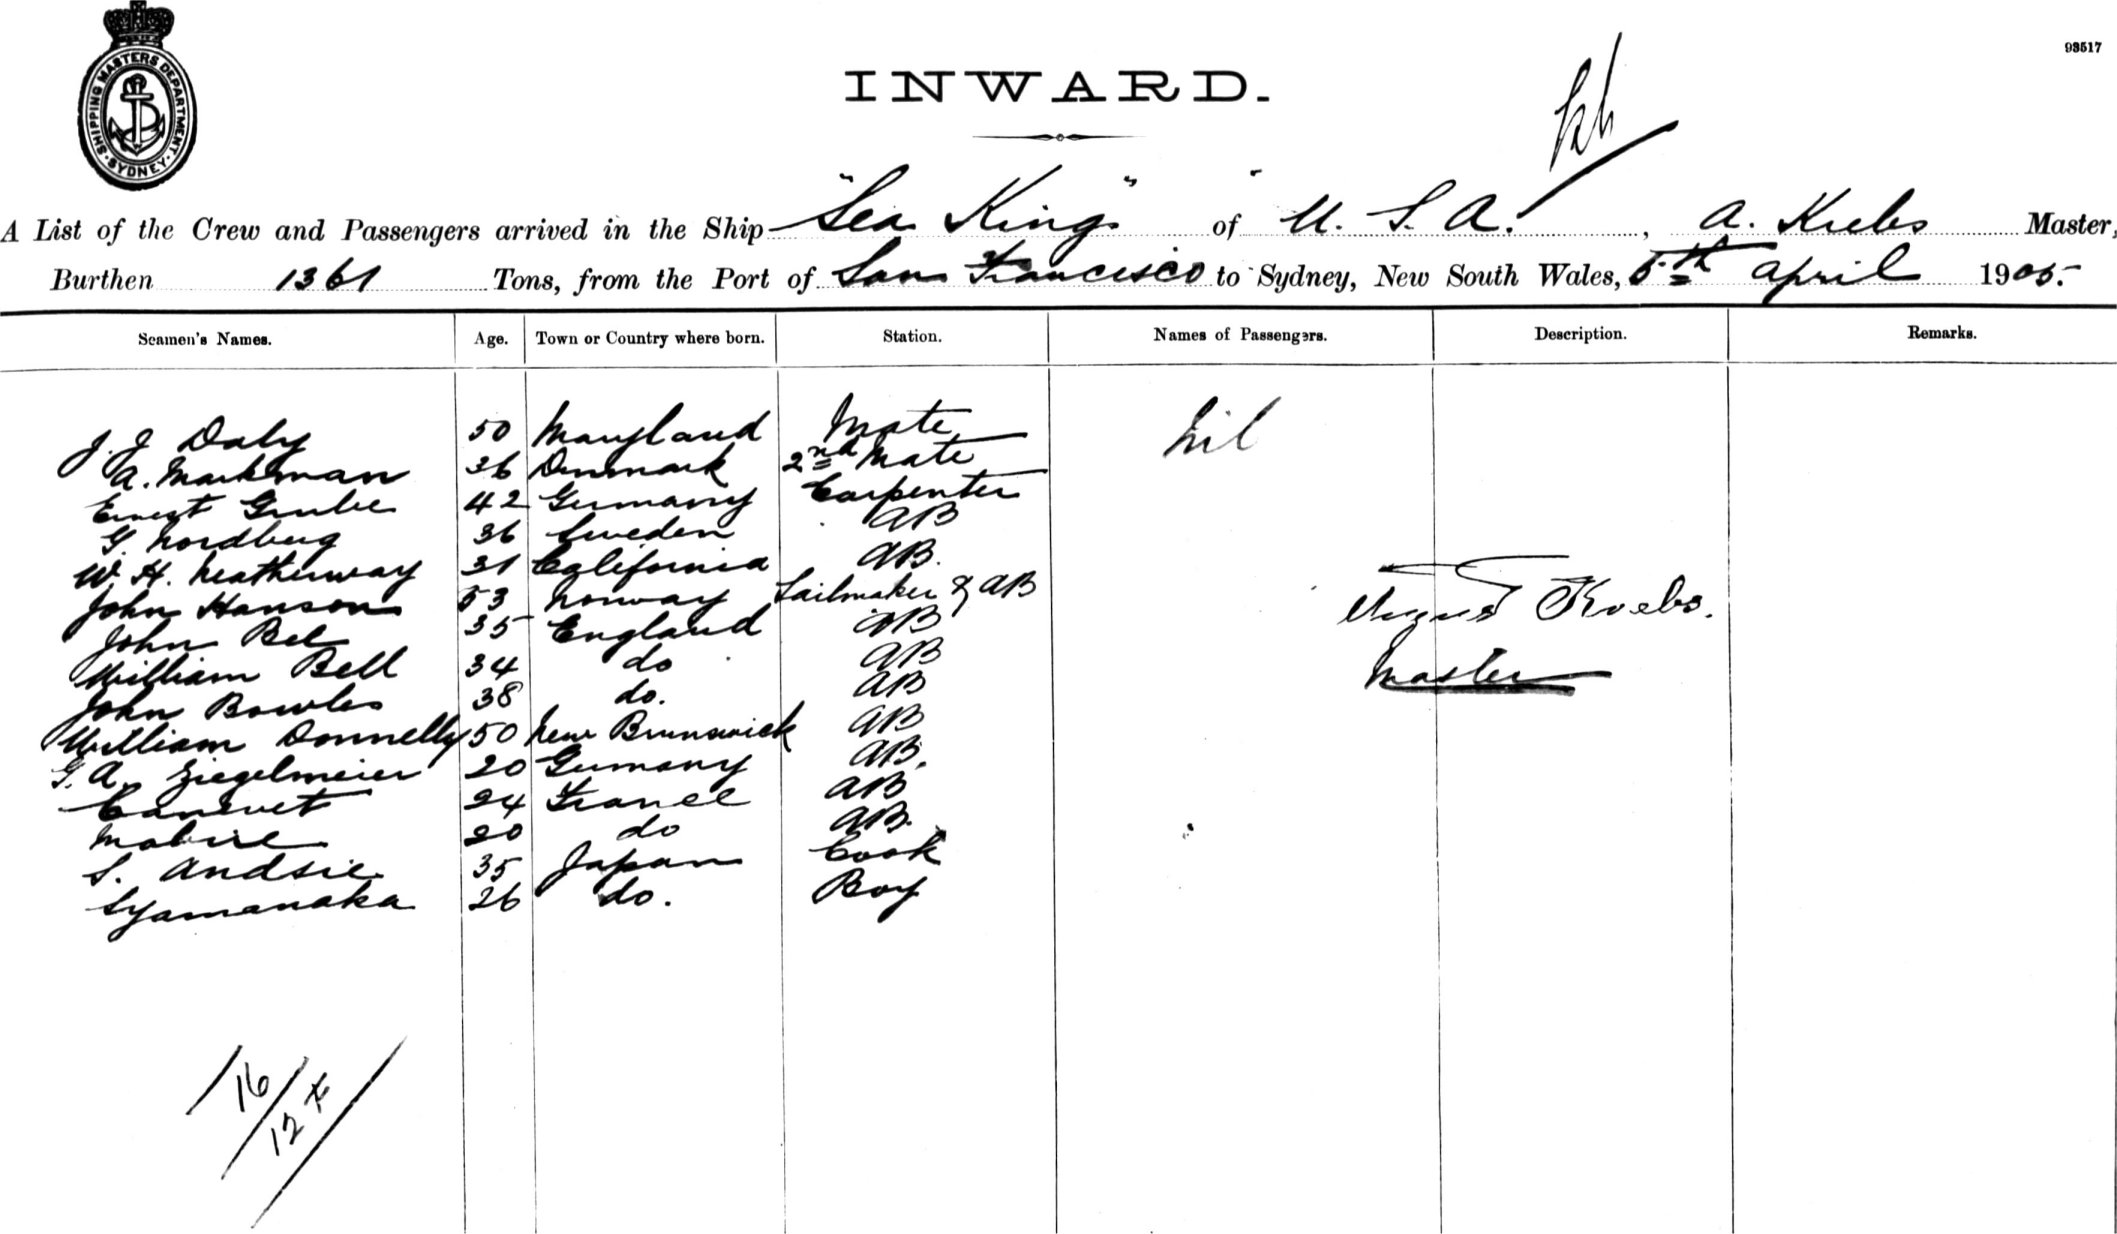 SHIPPING MASTERS DEPARTMENT · SYDNEY ·
93517
INWARD.
A List of the Crew and Passengers arrived in the Ship "Sea King" of U. S. A. , A. Krebs Master,
Burthen 1361 Tons, from the Port of San Francisco to Sydney, New South Wales, 5th April 1905.
Seamen's Names. Age. Town or Country where born. Station. Names of Passengers. Description. Remarks.
J. J Daly 50 Maryland Mate nil
A. Markman 36 Denmark 2nd Mate
Ernest Grube 42 Germany Carpenter
G. Nordberg 36 Sweden AB
W. H. Neatherway 31 California AB.
John Hanson 53 Norway Sailmaker & AB
John Bel 35 England AB
William Bell 34 do AB
John Bowles 38 do. AB
William Donnelly 50 New Brunswick AB
G. A. Ziegelmeier 20 Germany AB.
Canevet 24 France AB
Mabire 20 do AB.
S. Andsie 35 Japan Cook
Syamanaka 26 do. Boy
August Krebs.
Master
16
12 x